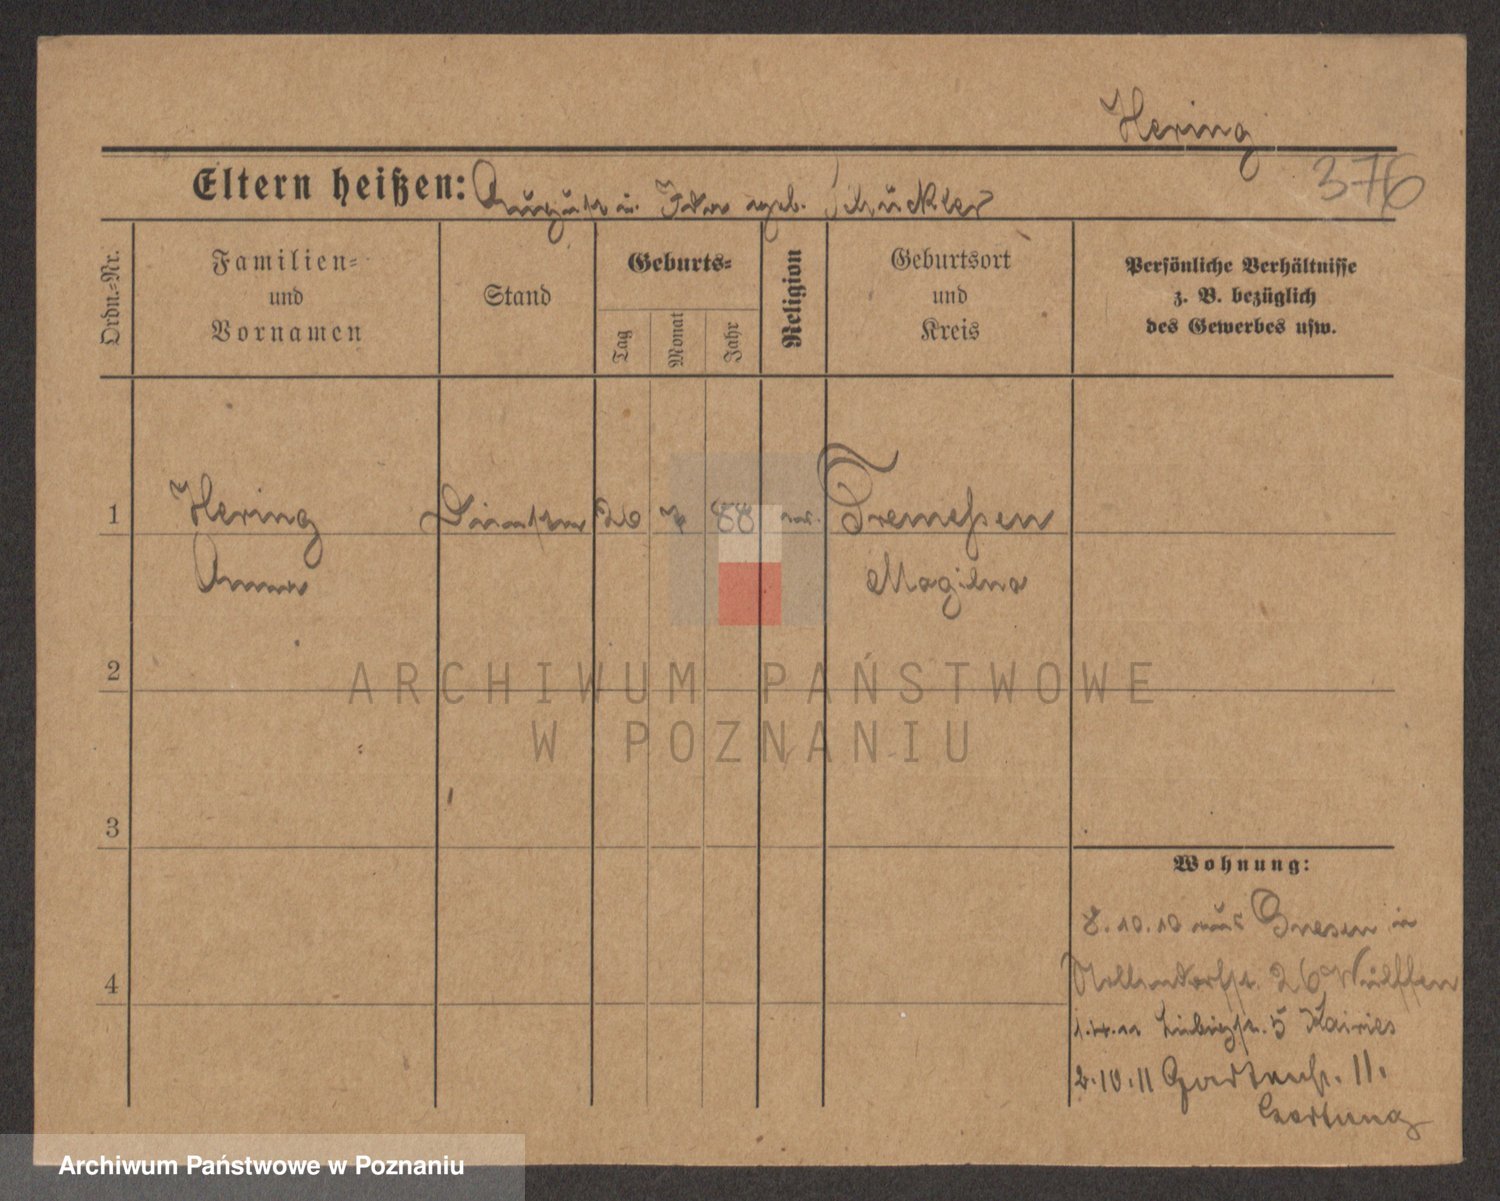 Hering
376
Eltern heißen: August u. Ida geb. Schückler
Ordn.-Nr.
Familien-
und
Vornamen
Stand
Geburts-
Tag
Monat
Jahr
Religion
Geburtsort
und
Kreis
Persönliche Verhältnisse
z. B. bezüglich
des Gewerbes usw.
1 Hering 26 7 88 Tremessen
Anna Mogilno
2
3
4
Wohnung:
8.10.10 aus Gnesen in
Nollendorfstr. 26 Wülffen
1.4.11 Liebigstr. 5 Kairies
2.10.11 Gartenstr. 11.
Hartung
ARCHIWUM PAŃSTWOWE
W POZNANIU
Archiwum Państwowe w Poznaniu